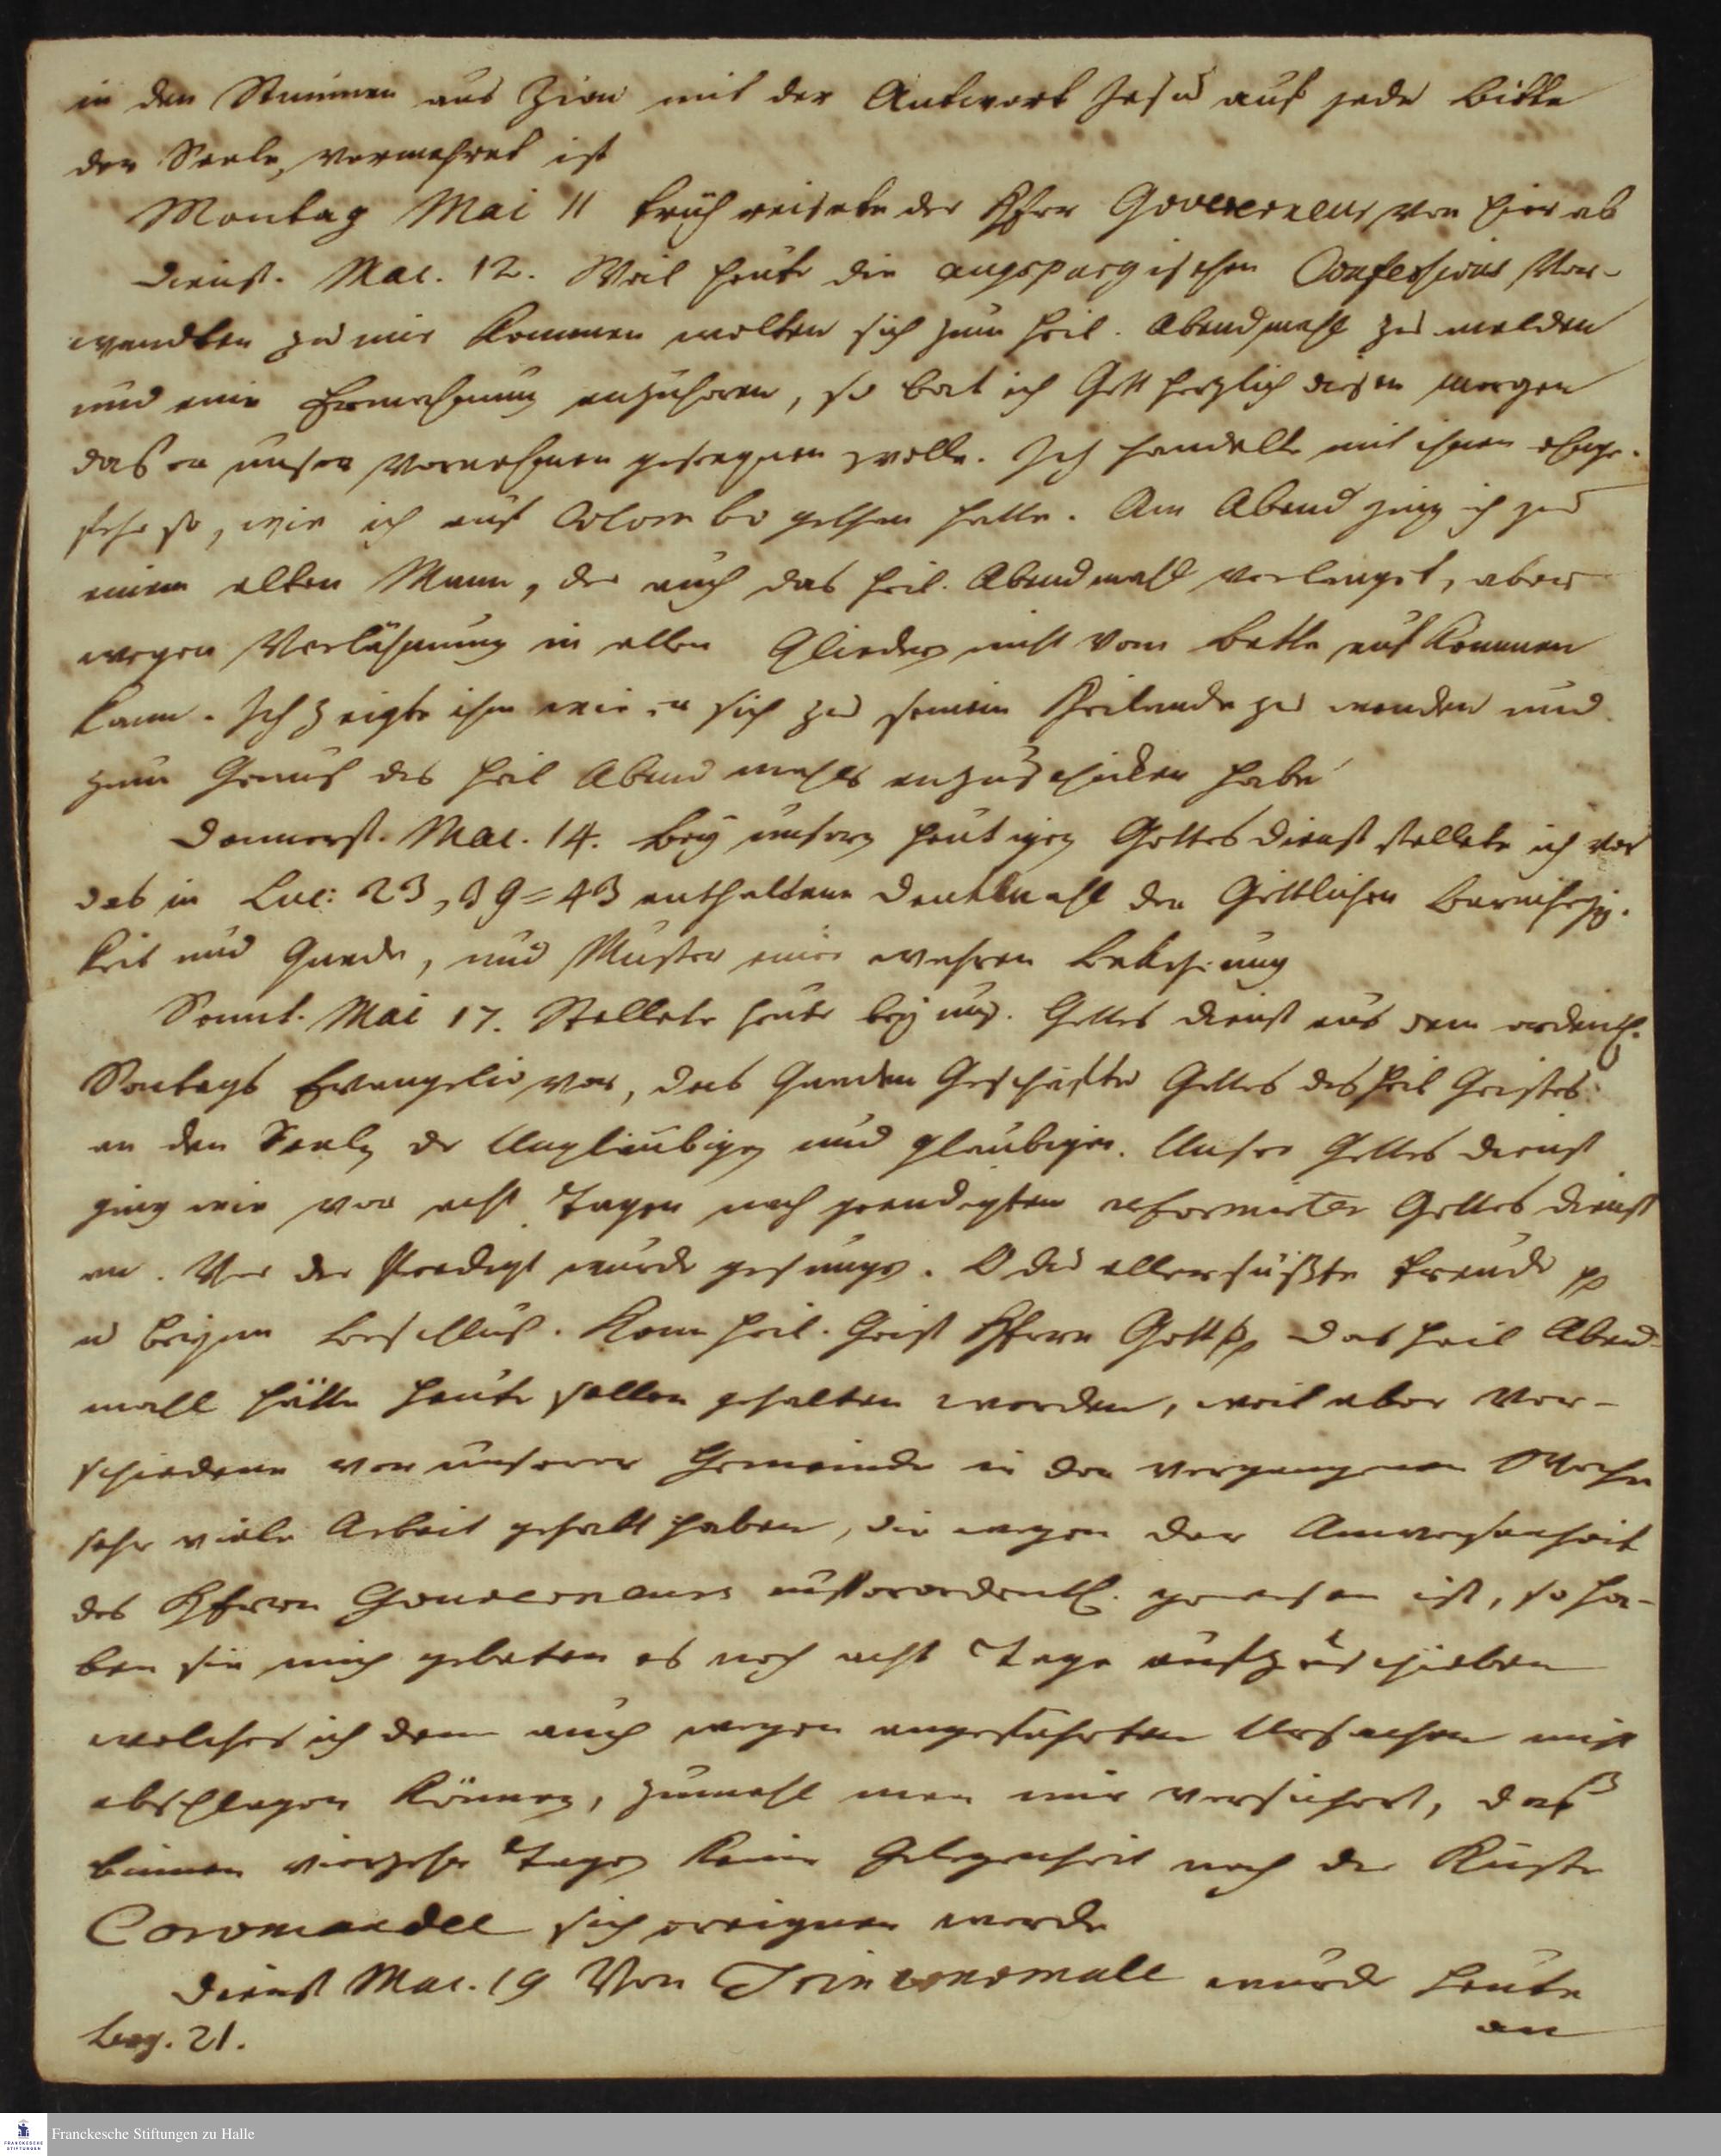 in den Stimmen aus Zion mit der Antwort Jesu auf jede Bitte
der Seele, vermehret ist
Montag Mai 11 früh reisete der Herr Governeur von hier ab
Dienst. Mai. 12. Weil heute die augspurgischen Confessions Ver-
wandten zu mir kommen wolten sich zum heil. Abendmahl zu melden
und eine Ermahnung anzuhören, so bat ich Gott herzlich diesen morgen
das er unser Vornehmen gesegnen wolle. Ich handelte mit ihnen ohnge-
fehr so, wie ich auf Colombo gethan hatte. Am Abend ging ich zu
einem alten Mann, der auch das heil. Abendmahl verlanget, aber
wegen Verlähmung in allen Gliedern nicht vom Bette auf kommen
kann. Ich zeigte ihm wie er sich zu seinem Heilande zu wenden und
zum Genuß des heil Abend mahls anzuschicken habe
Donnerst. Mai. 14. Bey unserm heutigen Gottesdienst stellete ich vor
das in Luc: 23, 39=43 enthaltene Denkmahl der Göttlichen Barmherzig-
keit und Gnade, und Muster einer wahren Bekehrung
Sonnt. Mai 17. Stellete heute bey uns. Gottes dienst aus dem ordentl.
Sontags Evangelio vor, das Gnaden Geschäfte Gottes des heil Geistes
an den Seelen der Ungläubigen und gläubigen. Unser Gottes dienst
ging wie vor acht Tagen nach geendigten reformirter Gottes dienst
an. Vor der Predigt wurde gesungen. O du allersüßte Freude pp
u beym Beschluß. Kom heil. Geist Herre Gott pp das heil Abend-
mahl hätte heute sollen gehalten werden, weil aber ver-
schiedene von unserer Gemeinde in der vergangenen Woche
sehr viele Arbeit gehabt haben, die wegen der Anwesenheit
des Herren Gouverneurs außerordentl. gewesen ist, so ha-
ben sie mich gebeten es noch acht Tage aufzuschieben
welches ich denn auch wegen angeführten Ursachen nicht
abschlagen können, zumahl man mir versichert, daß
binnen vierzehn Tagen keine Gelegenheit nach der Küste
Coromandel sich ereignen werde
Dienst Mai. 19 Von Trinconomale wurde heute
an
Beyl. 21.
Franckesche Stiftungen zu Halle